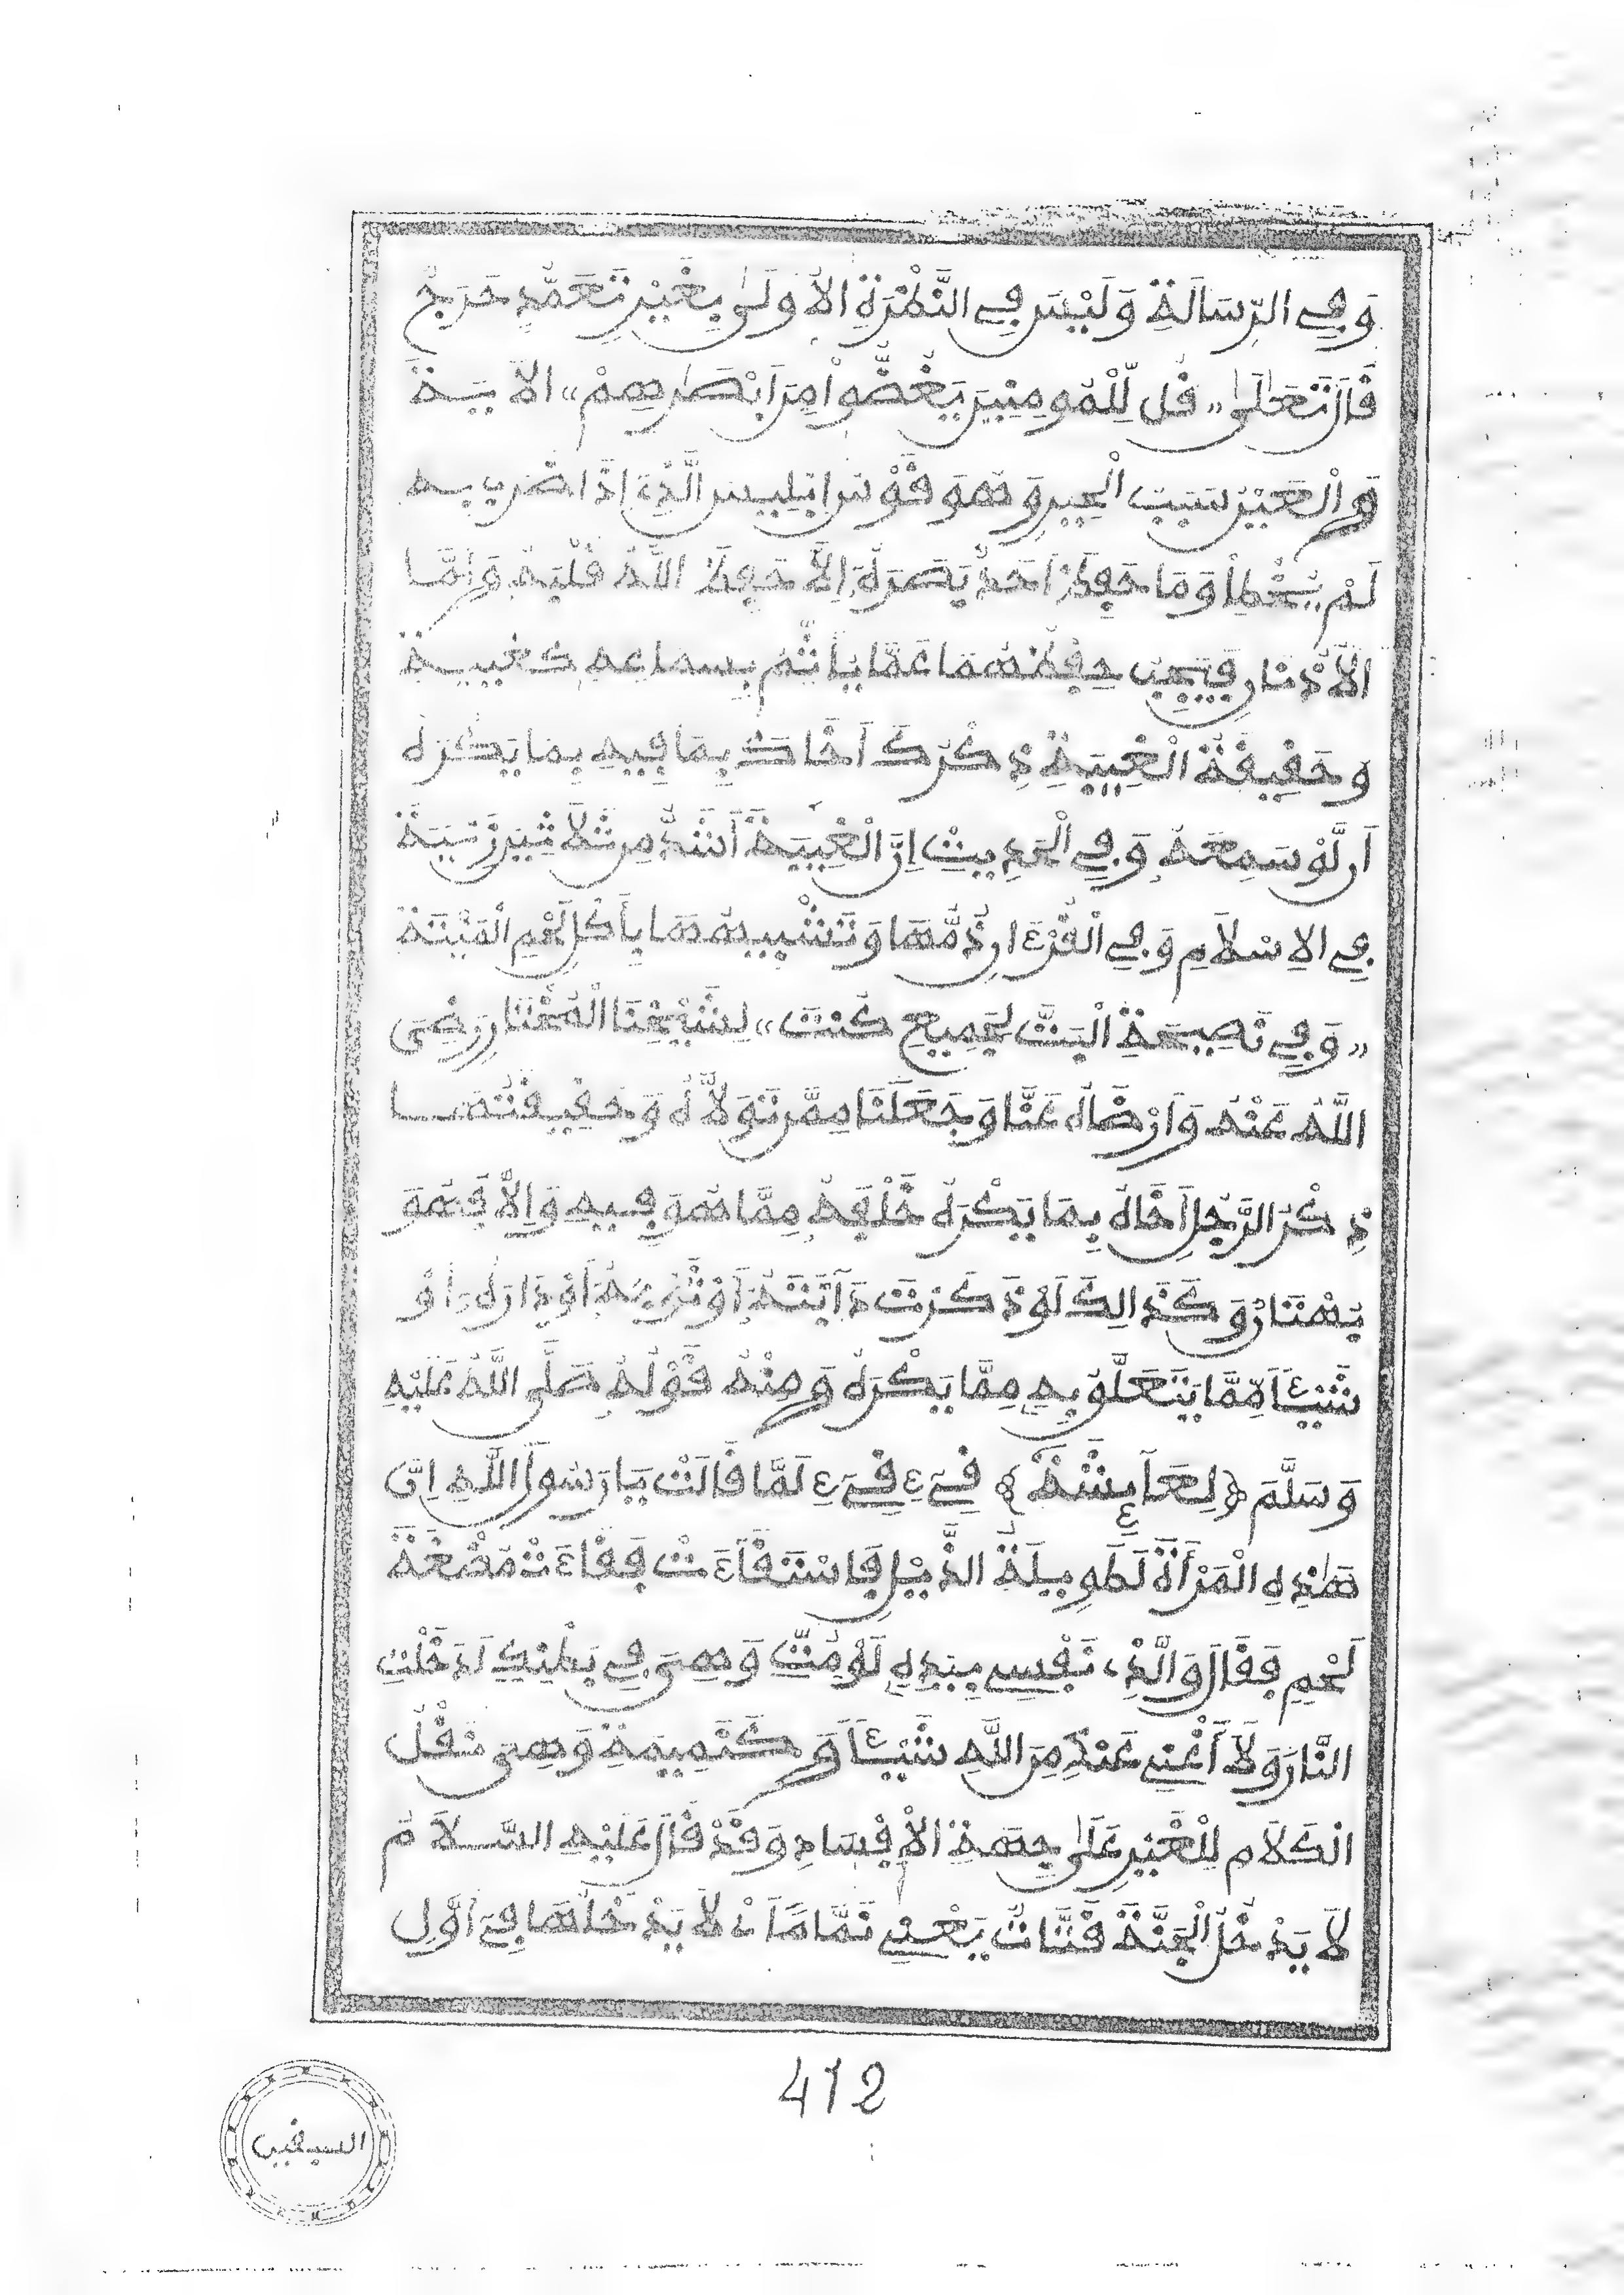 وَفِي الرِّسَالَةِ وَلَيْسَ فِي النَّظْرَةِ الأُولَىٰ بِغَيْرِ تَعَمُّدٍ حَرَجٌ
قَالَ تَعَلَىٰ «قُل لِّلْمُومِنِينَ يَغُضُّواْ مِنَ ابْصَٰرِهِمْ» الآيَةَ
وَالْعَيْنُ سَبَبُ الْحَيْنِ وَهُوَ قَوْسُ إبْلِيسَ الَّذِي إِذَا ضَرَبَ بِهِ
لَمْ يُخْطِأْ وَمَا حَفِظَ أَحَدٌ بَصَرَهُ إِلاَّ حَفِظَ اللَّهُ قَلْبَهُ وَأَمَّا
الأُذْنَانِ فَيَجِبُ حِفْظُهُمَا عَمَّا يَأْثَمُ بِسَمَاعِهِ كَغِيبَةٍ
وَحَقِيقَةُ الْغِيبَةِ ذِكْرُكَ أَخَاكَ بِمَا فِيهِ بِمَا يَكْرَهُ
أَن لَّوْ سَمِعَهُ وَفِي الْحَدِيثِ إِنَّ الْغِيبَةَ أَشَدُّ مِن ثَلاَثِينَ زَنْيَةً
فِي الإِسْلاَمِ وَفِي الْقُرْءَانِ ذَمُّهَا وَتَشْبِيهُهَا بِأَكْلِ لَحْمِ الْمَيْتَةِ
«وَفِي نَصِيحَةِ الْبَتِّ لِجَمِيعِ كُنْتَ» لِشَيْخِنَا الْمُخْتَارِ رَضِيَ
اللَّهُ عَنْهُ وَأَرْضَاهُ عَنَّا وَجَعَلَنَا مِمَّن تَوَلاَّهُ وَحَقِيقَتُهَا
ذِكْرُ الرَّجُلِ أَخَاهُ بِمَا يَكْرَهُ خَلْفَهُ مِمَّا هُوَ فِيهِ وَإِلاَّ فَهُوَ
بُهْتَانٌ وَكَذَالِكَ لَوْ ذَكَرْتَ دَآبَّتَهُ أَوْ ثَوْبَهُ أَوْ دَارَهُ أَوْ
شَيْـئًا مِّمَّا يَتَعَلَّقُ بِهِ مِمَّا يَكْرَهُ وَمِنْهُ قَوْلُهُ صَلَّى اللَّهُ عَلَيْهِ
وَسَلَّمَ ﴿لِعَآئِشَةَ﴾ قِےءِ قِےءِ لَمَّا قَالَتْ يَا رَسُولَ اللَّهِ إِنَّ
هَٰذِهِ الْمَرْأَةَ لَطَوِيلَةُ الذَّيْلِ فَاسْتَقَآءَتْ فَقَاءَتْ مُضْغَةَ
لَحْمٍ فَقَالَ وَالَّذِي نَفْسِي بِيَدِهِ لَوْ مُتِّ وَهِيَ فِي بَطْنِكِ لَدَخَلْتِ
النَّارَ وَلاَ أُغْنِي عَنْكِ مِنَ اللَّهِ شَيْـئًا وَكَنَمِيمَةٍ وَهِيَ نَقْلُ
الْكَلاَمِ لِلْغَيْرِ عَلَىٰ جِهَةِ الإِفْسَادِ وَقَدْ قَالَ عَلَيْهِ السَّلاَمُ
لاَ يَدْخُلُ الْجَنَّةَ قَتَّاتٌ يَعْنِي نَمَّامًا أَيْ لاَ يَدْخُلُهَا فِي أَوَّلِ
412